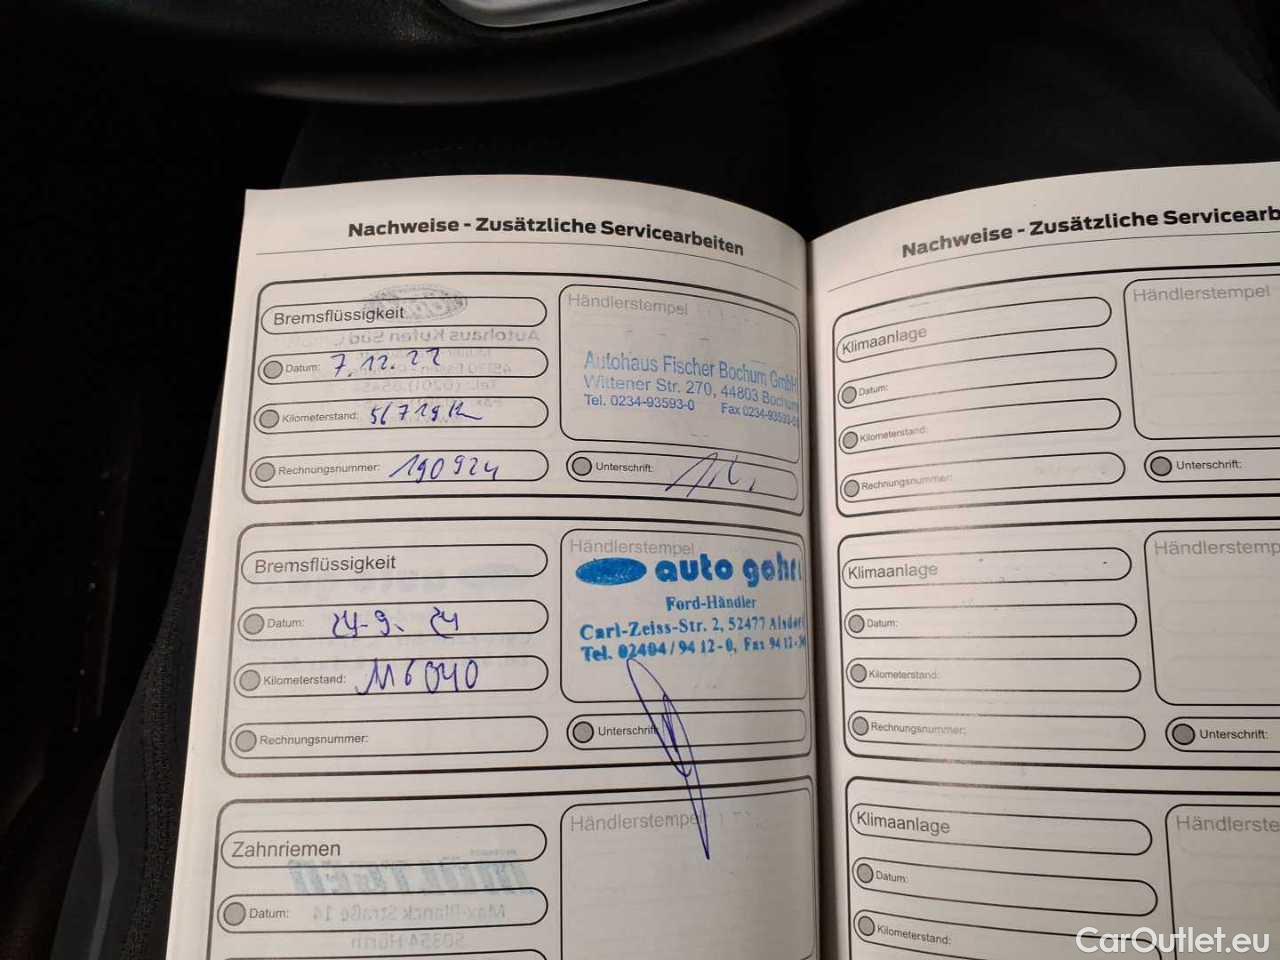 Nachweise - Zusätzliche Servicearbeiten
Bremsflüssigkeit
Datum: 7.12.22
Kilometerstand: 56719 Km
Rechnungsnummer: 190924
Händlerstempel
Autohaus Fischer Bochum GmbH
Wittener Str. 270, 44803 Bochum
Tel. 0234-93593-0 Fax 0234-93593-
Unterschrift:
Bremsflüssigkeit
Datum: 24-9. 24
Kilometerstand: 116040
Rechnungsnummer:
Händlerstempel
auto gehr
Ford-Händler
Carl-Zeiss-Str. 2, 52477 Alsdorf
Tel. 02404/94 12-0, Fax 94 12-
Unterschrift:
Zahnriemen
Datum:
Händlerstempel
Nachweise - Zusätzliche Servicearb
Klimaanlage
Datum:
Kilometerstand:
Rechnungsnummer:
Händlerstempel
Unterschrift:
Klimaanlage
Datum:
Kilometerstand:
Rechnungsnummer:
Händlerstemp
Unterschrift:
Klimaanlage
Datum:
Kilometerstand:
Händlerste
CarOutlet.eu